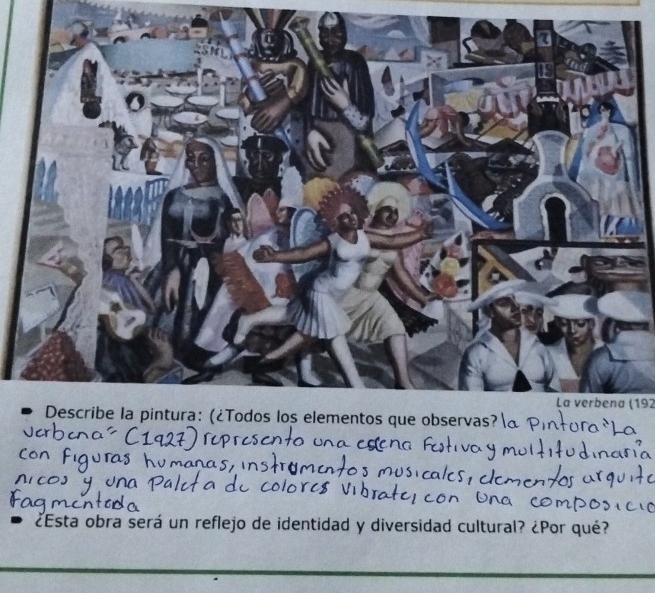 La verbena (192
Describe la pintura: (¿Todos los elementos que observas? la Pintura "La
verbena" (1927) represento una escena Festiva y multitudinaria
con Figuras humanas, instrumentos musicales, elementos arquite
nicos y una Paleta de colores vibrate, con una composicio
Fagmentada
¿Esta obra será un reflejo de identidad y diversidad cultural? ¿Por qué?